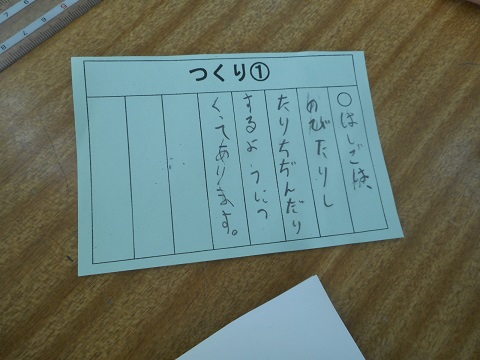 つくり①
○はしごは、
のびたりし
たりちぢんだり
するようにつ
くってあります。